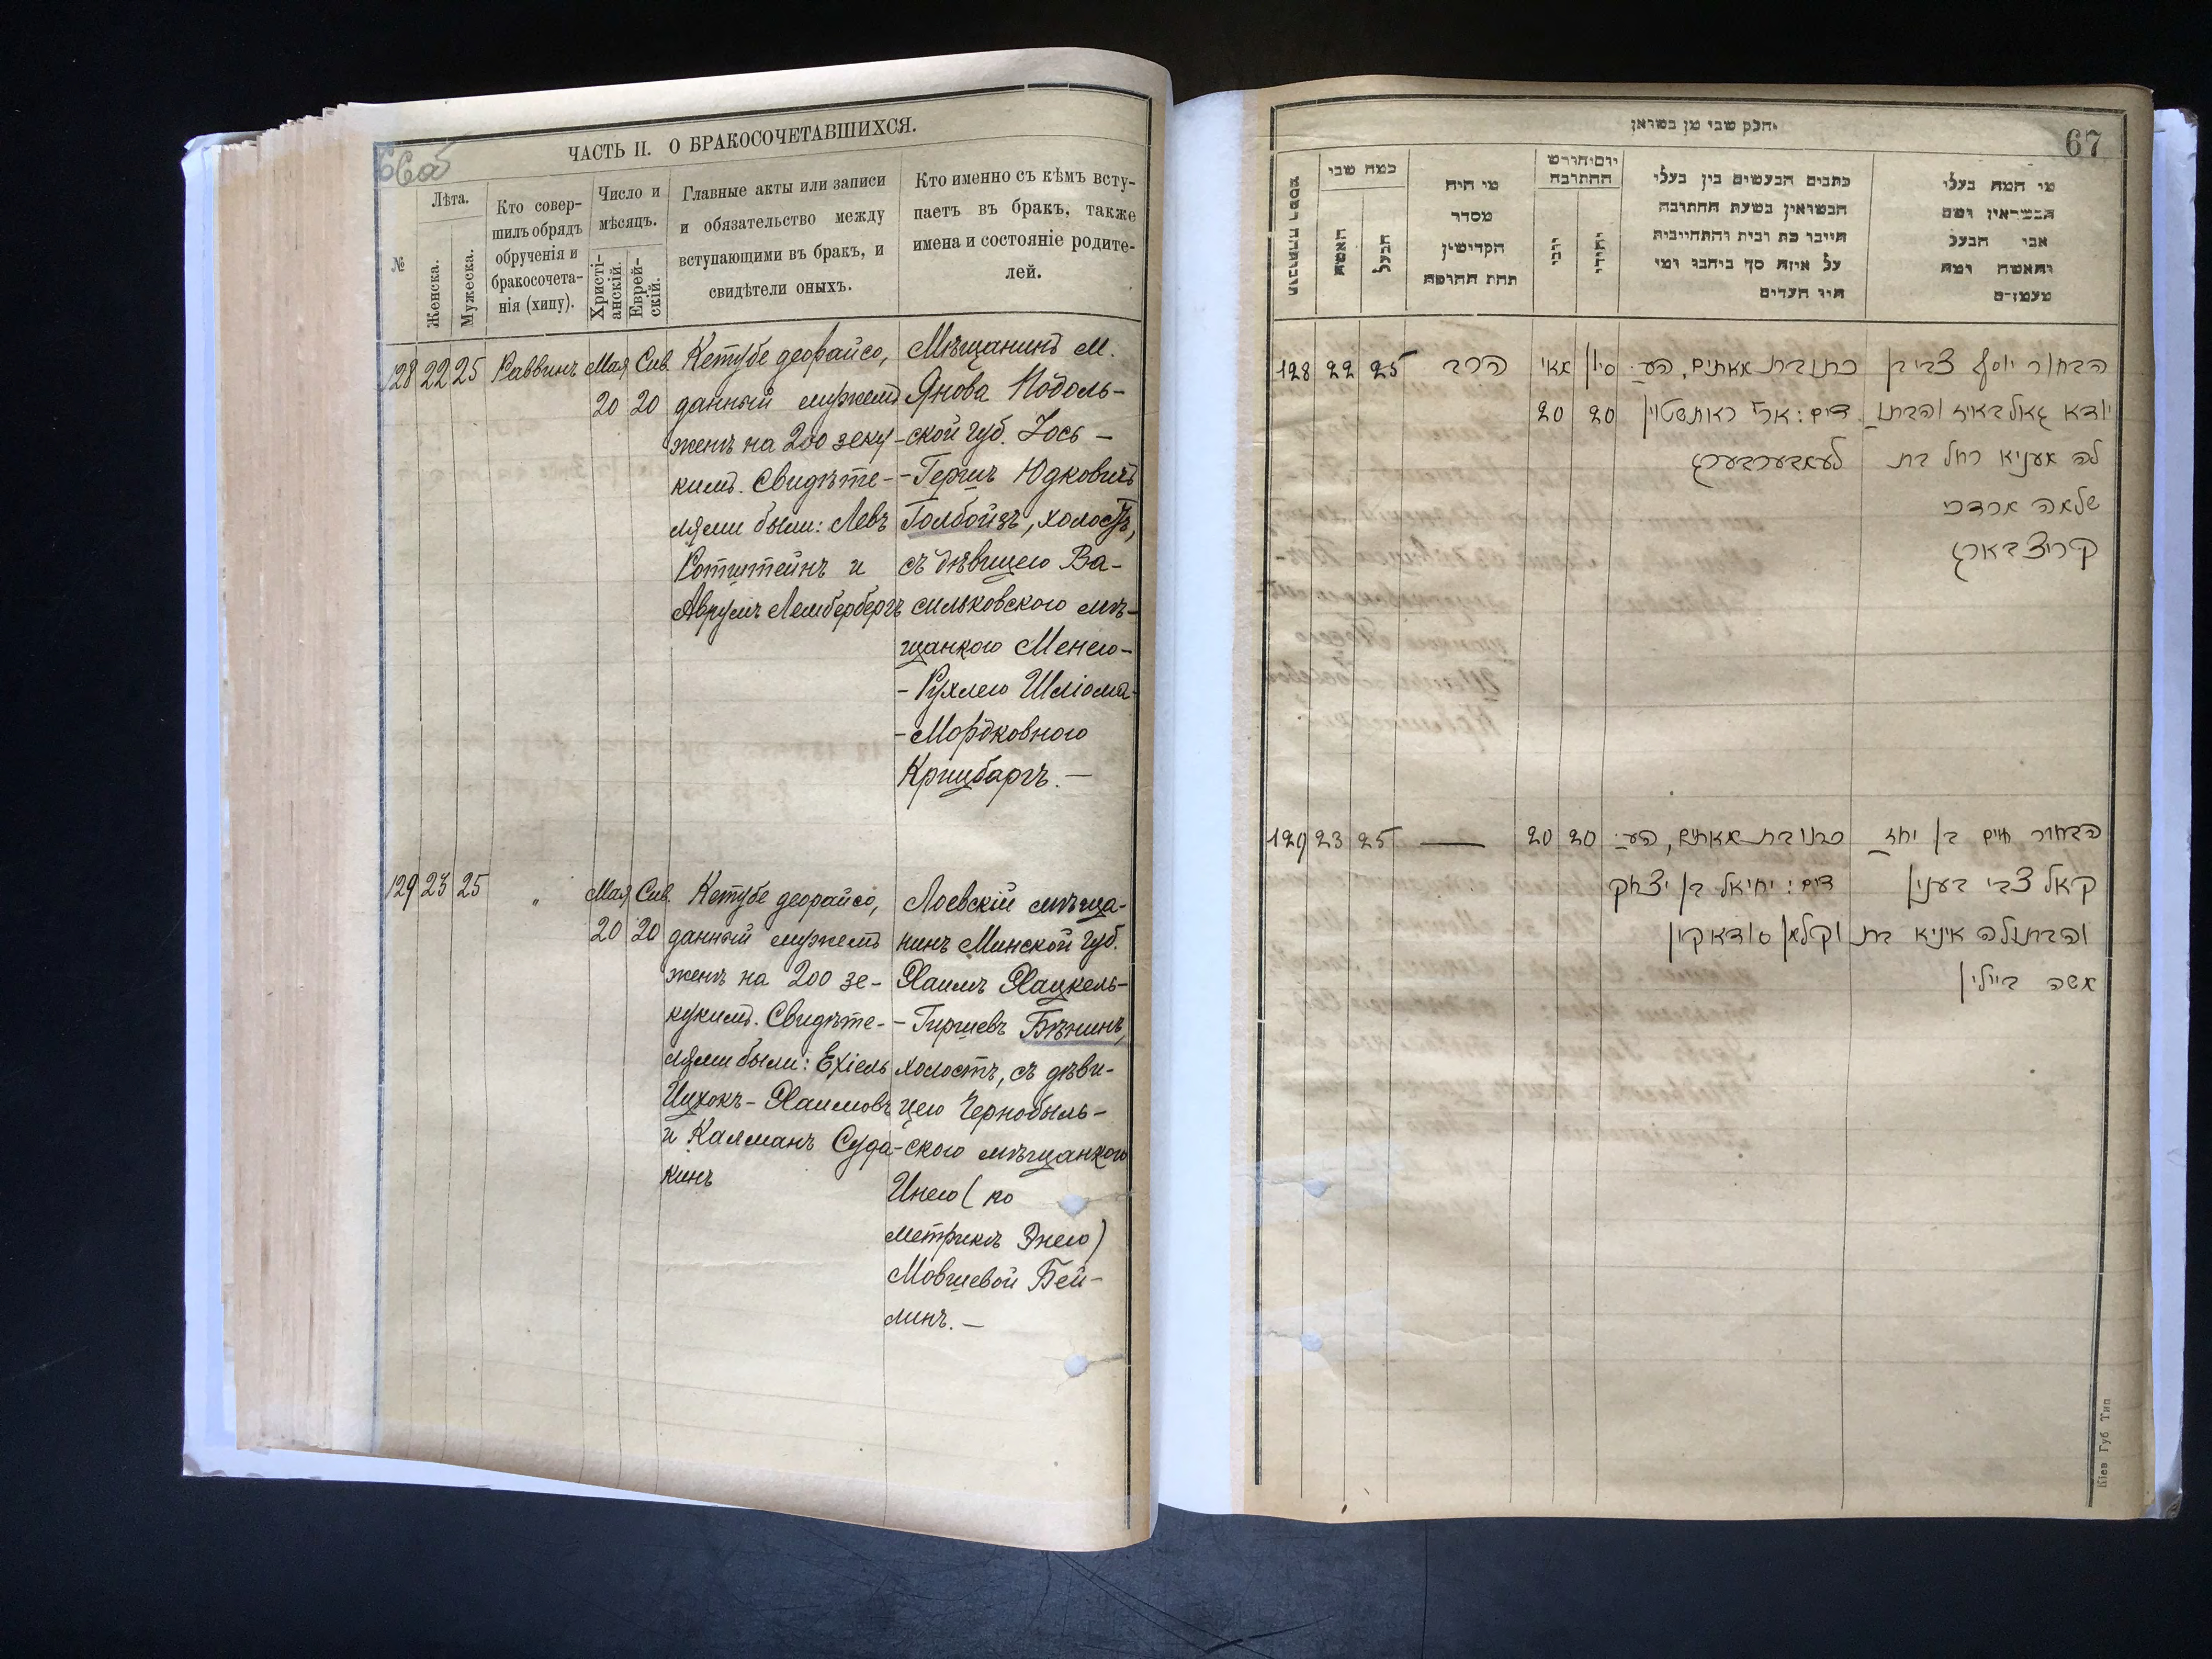 66об
ЧАСТЬ II. О БРАКОСОЧЕТАВШИХСЯ.
№
Лѣта.
Женска.
Мужеска.
Кто совер-
шилъ обрядъ
обрученія и
бракосочета-
нія (хипу).
Число и
мѣсяцъ.
Христі-
анскій.
Еврей-
скій.
Главные акты или записи
и обязательство между
вступающими въ бракъ, и
свидѣтели оныхъ.
Кто именно съ кѣмъ всту-
паетъ въ бракъ, также
имена и состояніе родите-
лей.
128 22 25 Раввинъ Мая 20 Сив. 20
Кетубе деорайсо,
данный мужемъ
женѣ на 200 зеку-
кимъ. Свидѣте-
лями были: Левъ
Ротштейнъ и
Аврумъ Лемберберъ
Мѣщанинъ м.
Янова Подоль-
ской губ. Іось-
-Гершъ Юдковичъ
Голбойзъ, холостъ,
съ дѣвицею Ва-
сильковскою мѣ-
щанкою Менею-
-Рухлею Шліома-
-Мордковною
Крицбаргъ.-
129 23 25 " Мая 20 Сив. 20
Кетубе деорайсо,
данный мужемъ
женѣ на 200 зе-
кукимъ. Свидѣте-
лями были: Ехіель
Ицхокъ-Хаимовъ
и Калманъ Суда-
кинъ
Лоевскій мѣща-
нинъ Минской губ.
Хаимъ Хацкель-
-Гиршевъ Бѣнинъ,
холостъ, съ дѣви-
цею Чернобыль-
скою мѣщанкою
Инею (по
метрикѣ Энею)
Мовшевой Бей-
линъ.-
67
מי המה בעלי
אבי הבעל
והאשה ומה
כתבים הנעשים בין בעלי
הנשואין בשעת החתונה
על איזה סך ביחבו ומי
היו העדים
כמה שני
האשה
הבעל
מי היה
מסדר
הקדושין
תחת החופה
128 22 25 הרב מאי 20 סיון 20
כתובת מאתים, הע:
דים: ארי ראטשטיין
לעמבערבערג
הבחור יוסף צבי בן
יודא גאלבאיז והבתו
לה מעניא רחל בת
שלמה מרדכי
קריצבארג
129 23 25 — 20 20
כתובת מאתים, הע:
דים: יחיאל בן יצחק
וקלמן סודאקין
הבחור חיים בן יחז
קאל צבי בענין
והבתולה איניא בת
משה ביילין
Кіев Губ Тип